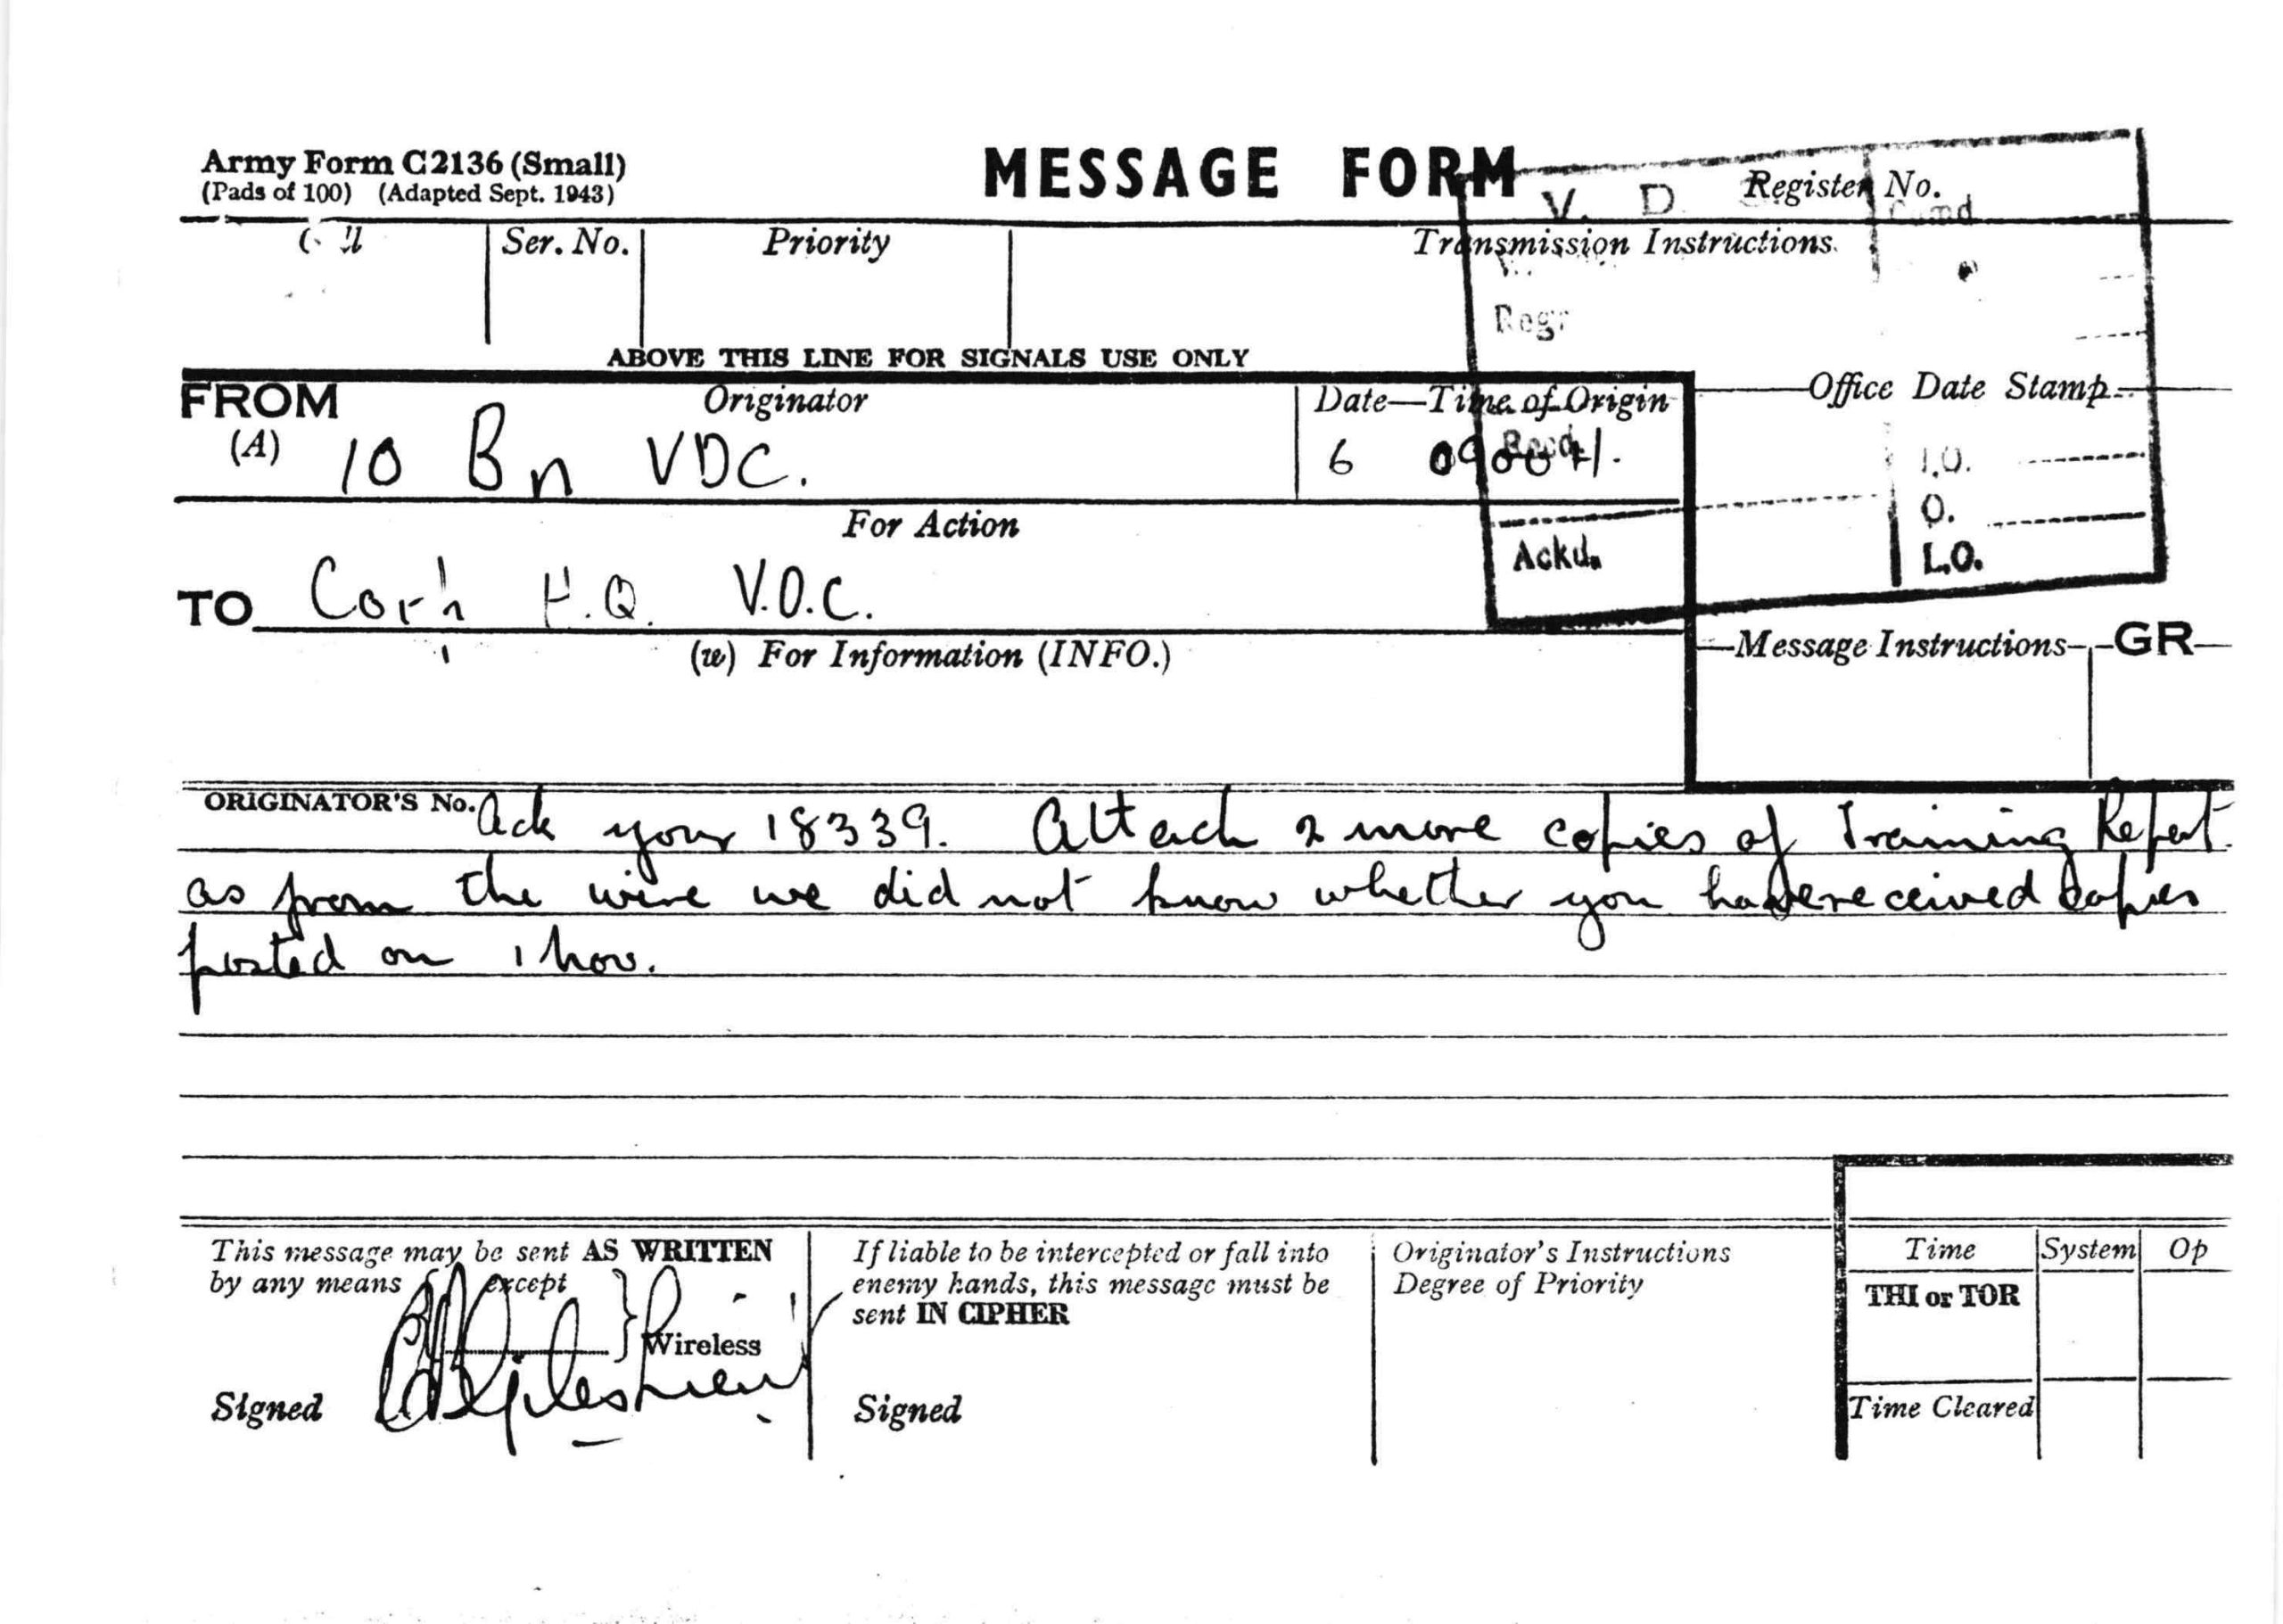 Army Form C2136 (Small)
(Pads of 100) (Adapted Sept. 1943)
MESSAGE FORM
Register No.
V. D.
Ser. No. Priority Transmission Instructions.
Regr
ABOVE THIS LINE FOR SIGNALS USE ONLY
FROM Originator Date—Time of Origin Office Date Stamp
(A) 10 Bn VDC. 6 0900H.
Recd.
I.O.
O.
L.O.
Ackd.
For Action
TO H.Q. V.D.C.
(w) For Information (INFO.) Message Instructions GR
ORIGINATOR'S No. Ack your 18339. Attach 2 more copies of Training Report
as from the wire we did not know whether you have received copies
posted on 1 Nov.
This message may be sent AS WRITTEN
by any means except
Wireless
Signed
If liable to be intercepted or fall into
enemy hands, this message must be
sent IN CIPHER
Signed
Originator's Instructions
Degree of Priority
Time System Op
THI or TOR
Time Cleared